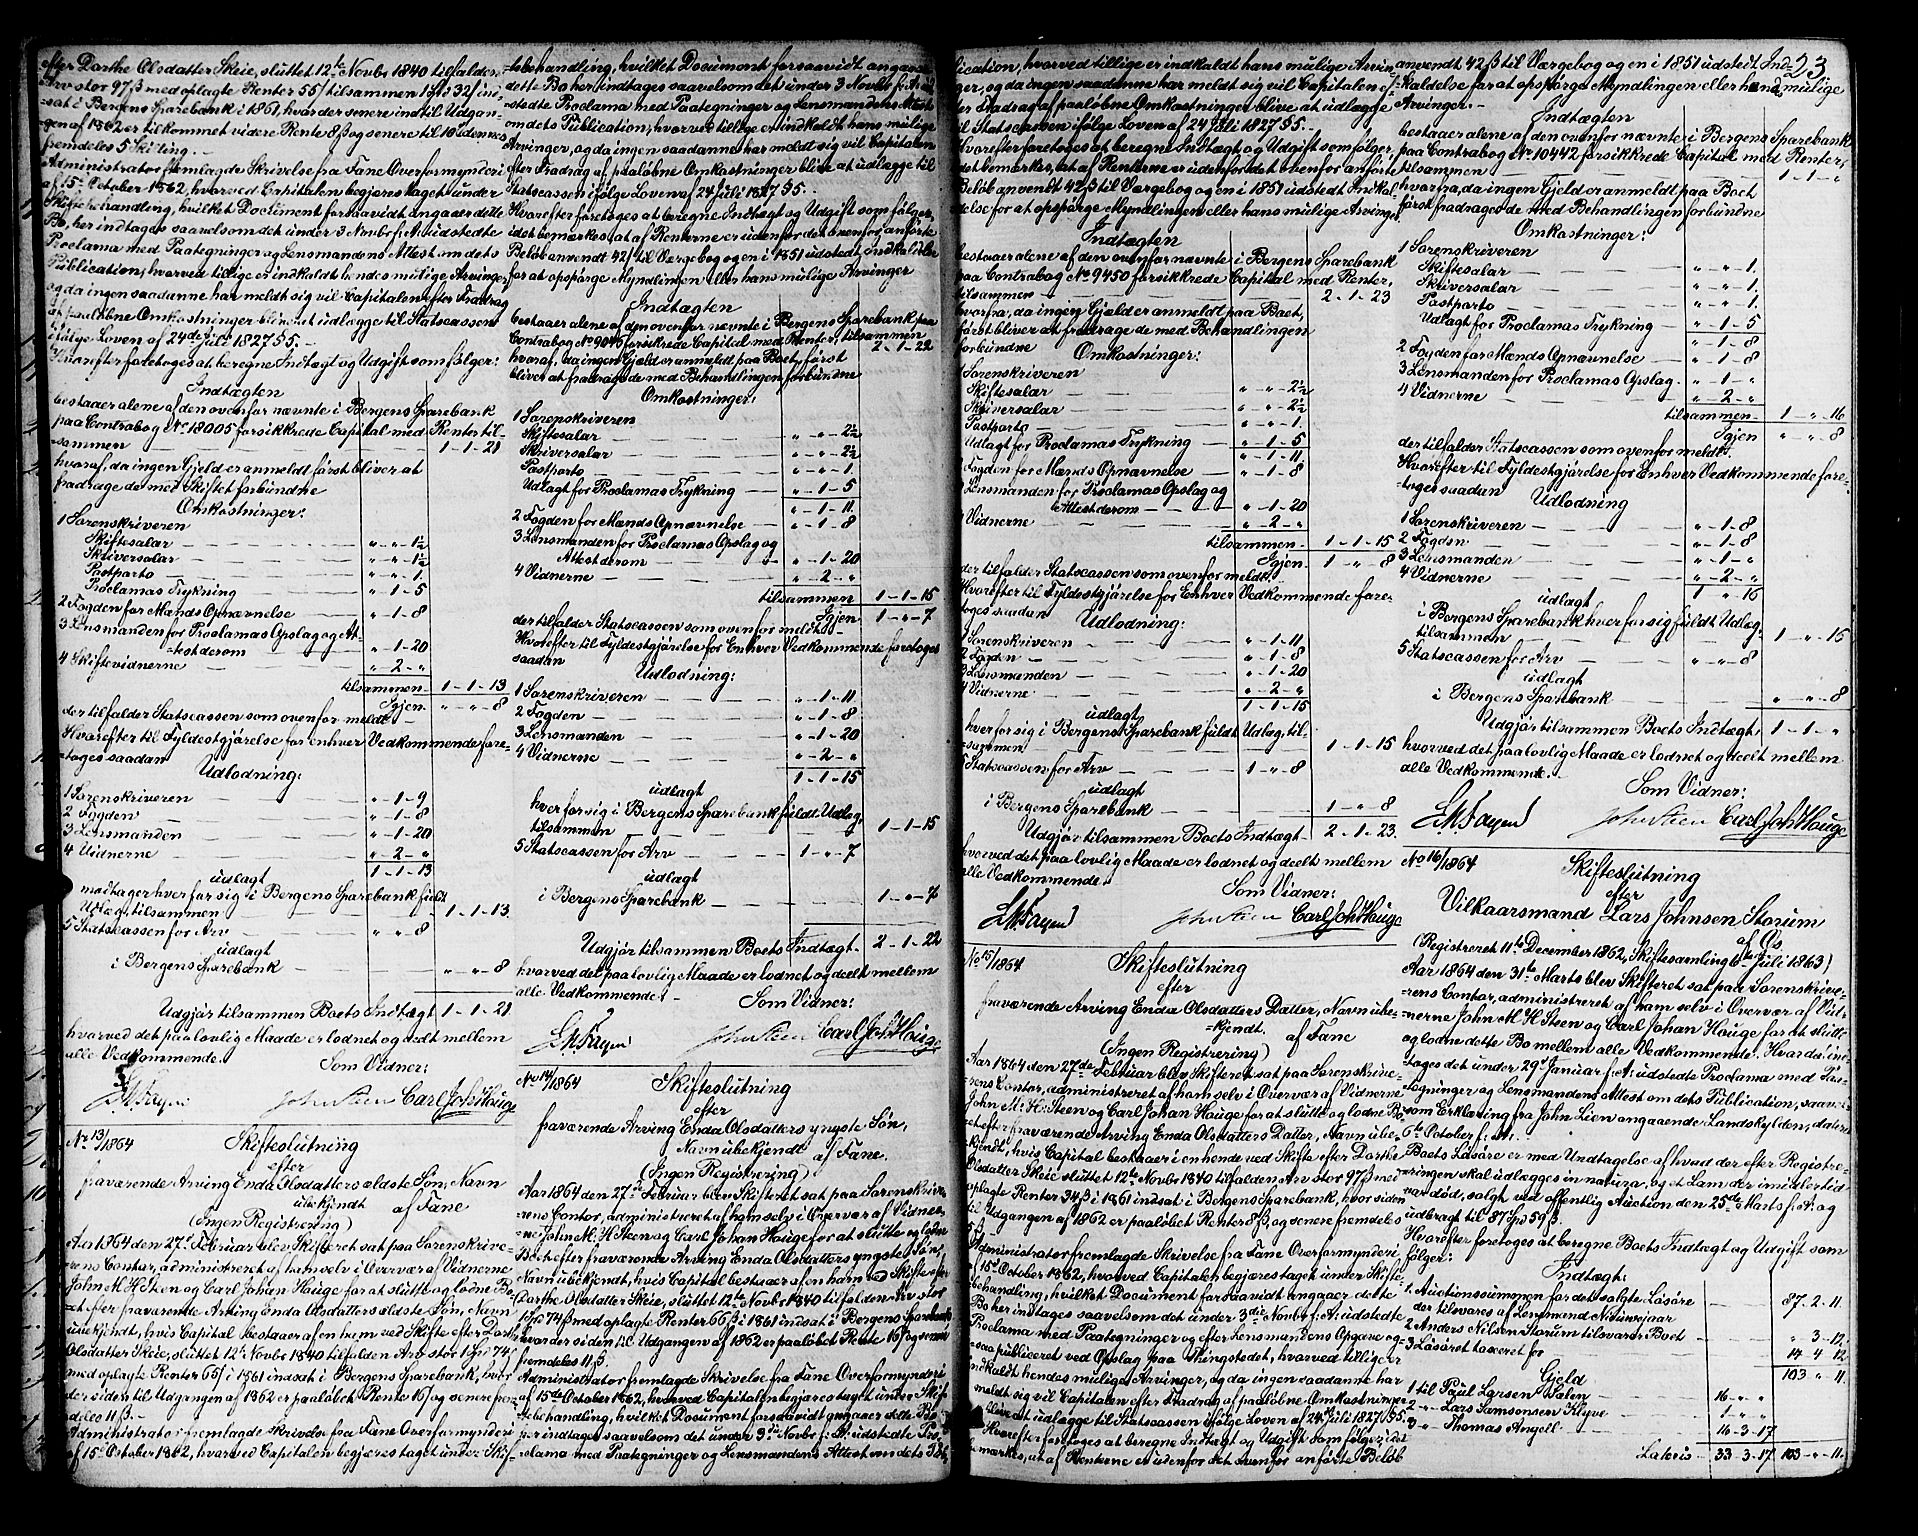 efter Dorthe Olsdatter Skeie, sluttet 12te Novbr 1840 tilfalden
Arv stor 97 ß med oplagte Renter 55 / tilsammen 1 Spd 32 / ind-
-sat i Bergens Sparebank i 1861, hvor der senere ind til Udgan-
gen af 1862 er tilkommet videre Rente 8 ß og senere til
fremdeles 5 Skilling.
Administrator fremlagde Skrivelse fra Fane Overformynderi
af 15de October 1862, hvorved Capitalen begjæres taget under
Skiftebehandling, hvilket Document forsaavidt angaar dette
Bo, her indtages saavelsom det under 3 Novbr f. A. udstedte
Proclama med Paategninger og Lensmandens Attest om dets
Publication, hvorved tillige er indkaldt hendes mulige Arvinger
og da ingen saadanne har meldt sig vil Capitalen efter Fradrag
af paaløbne Omkostninger blive at udlægge til Statscassen
ifølge Loven af 24de Juli 1827 § 5.
Hvorefter foretoges at beregne Indtægt og Udgift som følger:
Indtægten
bestaaer alene af den ovenfor nævnte i Bergens Sparebank
paa Contrabog No 18005 forsikkrede Capital med Renter til-
-sammen — 1-1-21
hvoraf, da ingen Gjeld er anmeldt først bliver at
fradrage de med Skiftet forbundne
Omkostninger:
1 Sorenskriveren
Skiftesalar — " - " - 1½
Skriversalar — " - " - 1½
Postporto — " - " - 1
Proclamas Trykning — " - 1 - 5
2 Fogden for Mænds Opnævnelse " - 1 - 8
3 Lensmanden for Proclamas Opslag og At-
-test derom — " - 1 - 20
4 Skiftevidnerne — " - 2 - "
tilsammen 1 - 1 - 13
Igjen " - " - 8
der tilfalder Statscassen som ovenfor meldt.
Hvorefter til Fyldestgjørelse for enhver Vedkommende fore-
toges saadan
Udlodning:
1 Sorenskriveren — " - 1 - 9
2 Fogden — " - 1 - 8
3 Lensmanden — " - 1 - 20
4 Vidnerne — " - 2 - "
udlagt 1 - 1 - 13
modtager hver for sig i Bergens Sparebank fuldt
Udlag, tilsammen — 1 - 1 - 13
5 Statscassen for Arv — " - " - 8
udlagt
i Bergens Sparebank — " - " - 8
Udgjør tilsammen Boets Indtægt 1 - 1 - 21
hvorved det paa lovlig Maade er lodnet og deelt mellem
alle Vedkommende.
Som Vidner:
John Steen Carl Joh Houge
No 13/1864 Skifteslutning
efter
fraværende Arving Enda Olsdatters ældste Søn, Navn
ubekjendt af Fane
(Ingen Registrering)
Aar 1864 den 27de Februar blev Skifteret sat paa Sorenskrive-
rens Contor, administreret af ham selv i Overvær af Vidnerne
John M. H. Steen og Carl Johan Houge for at slutte og lodne Bo-
-et efter fraværende Arving Enda Olsdatters ældste Søn, Navn
ubekjendt, hvis Capital bestaaer af en ham ved Skifte efter Dorthe
Olsdatter Skeie, sluttet 12te Novbr 1840 tilfalden Arv stor 1 Spd 74 ß
med oplagte Renter 65 / i 1861 indsat i Bergens Sparebank, hvor
der siden til Udgangen af 1862 er paaløbet Rente 16 / og senere frem-
deles 11 ß.
Administrator fremlagde Skrivelse fra Fane Overformynderi
af 15 October 1862, hvorved Capitalen begjæres taget under Skif-
tebehandling, hvilket Document forsaavidt angaaer
dette Bo her indtages saavelsom det under 3 Novbr f. A. ud-
stedte Proclama med Paategninger og Lensmandens Attest
om dets Publication, hvorved tillige er indkaldt hans mulige
Arvinger, og da ingen saadanne har meldt sig vil Capitalen
efter Fradrag af paaløbne Omkostninger blive at udlægge til
Statscassen ifølge Loven af 24 Juli 1827 § 5.
Hvorefter foretoges at beregne Indtægt og Udgift som følger,
idet bemærkes at af Renterne er udenfor det ovenfor anførte
Beløb anvendt 42 / til Værgebog og en i 1851 udstedt Indkaldelse
for at opspørge Myndlingen eller hans mulige Arvinger
Indtægten
bestaaer alene af den ovenfor nævnte i Bergens Sparebank paa
Contrabog No 9045 forsikrede Capital med Renter, tilsammen
2 - 1 - 22
hvoraf, da ingen Gjeld er anmeldt paa Boet, først
bliver at fradrage de med Behandlingen forbundne
Omkostninger:
1 Sorenskriveren
Skiftesalar — " - " - 2½
Skriversalar — " - " - 2½
Postporto — " - " - 1
Udlagt for Proclamas Trykning — " - 1 - 5
" - 1 - 11
2 Fogden for Mænds Opnævnelse — " - 1 - 8
3 Lensmanden for Proclamas Opslag og
Attest derom — " - 1 - 20
4 Vidnerne — " - 2 - "
tilsammen 1 - 1 - 15
Igjen 1 - " - 7
der tilfalder Statscassen som ovenfor meldt.
Hvorefter til Fyldestgjørelse for Enhver Vedkommende foretoges
saadan
Udlodning:
1 Sorenskriveren — " - 1 - 11
2 Fogden — " - 1 - 8
3 Lensmanden — " - 1 - 20
4 Vidnerne — " - 2 - "
1 - 1 - 15
udlagt
hver for sig i Bergens Sparebank fuldt Udlag,
tilsammen — 1 - 1 - 15
5 Statscassen for Arv — 1 - " - 7
udlagt
i Bergens Sparebank — 1 - " - 7
Udgjør tilsammen Boets Indtægt 2 - 1 - 22
hvorved det paa lovlig Maade er lodnet og deelt mellem
alle Vedkommende.
Som Vidner:
John Steen Carl Joh Houge
No 14/1864 Skifteslutning
efter
fraværende Arving Enda Olsdatters yngste Søn,
Navn ubekjendt af Fane.
(Ingen Registrering)
Aar 1864 den 27de Februar blev Skifteret sat paa Sorenskrive-
rens Contor, administreret af ham selv i Overvær af Vidner-
ne John M. H. Steen og Carl Johan Houge for at slutte og lodne
Boet efter fraværende Arving Enda Olsdatters yngste Søn,
Navn ubekjendt, hvis Capital bestaaer af en ham ved Skifte efter
Dorthe Olsdatter Skeie, sluttet 12te Novbr 1840 tilfalden Arv stor
1 Spd 74 ß med oplagte Renter 66 ß i 1861 indsat i Bergens Sparebank
hvor der siden til Udgangen af 1862 er paaløbet Rente 16 ß og senere
fremdeles 11 ß.
Administrator fremlagde Skrivelse fra Fane Overformynderi
af 15de October 1862, hvorved Capitalen begjæres taget under Skif-
tebehandling, hvilket Document forsaavidt angaaer dette Bo
her indtages saavelsom det under 3die Novbr f. A. udstedte Pro-
clama med Paategninger og Lensmandens Attest om dets Pub-
23
lication, hvorved tillige er indkaldt hans mulige Arvin-
ger, og da ingen saadanne har meldt sig vil Capitalen ef-
ter Fradrag af paaløbne Omkostninger blive at udlægge
til Statscassen ifølge Loven af 24 Juli 1827 § 5.
Hvorefter foretoges at beregne Indtægt og Udgift som følger,
idet bemærkes, at af Renterne er udenfor det ovenfor anførte
Beløb anvendt 42 ß til Værgebog og en i 1851 udstedt Indkal-
delse for at opspørge Myndlingen eller hans mulige Arvinger
Indtægten
bestaaer alene af den ovenfor nævnte i Bergens Sparebank
paa Contrabog No 9450 forsikkrede Capital med Renter,
tilsammen — 2 - 1 - 23
hvorfra, da ingen Gjeld er anmeldt paa Boet,
først bliver at fradrage de med Behandlingen
forbundne Omkostninger:
1 Sorenskriveren
Skiftesalar — " - " - 2½
Skriversalar — " - " - 2½
Postporto — " - " - 1
Udlagt for Proclamas Trykning — " - 1 - 5
" - 1 - 11
2 Fogden for Mænds Opnævnelse — " - 1 - 8
3 Lensmanden for Proclamas Opslag og
Attest derom — " - 1 - 20
4 Vidnerne — " - 2 - "
tilsammen 1 - 1 - 15
Igjen 1 - " - 8
der tilfalder Statscassen som ovenfor meldt.
Hvorefter til Fyldestgjørelse for Enhver Vedkommende fore-
toges saadan Udlodning:
1 Sorenskriveren — " - 1 - 11
2 Fogden — " - 1 - 8
3 Lensmanden — " - 1 - 20
4 Vidnerne — " - 2 - "
udlagt 1 - 1 - 15
hver for sig i Bergens Sparebank fuldt Udlag, til-
-sammen 1 - 1 - 15
5 Statscassen for Arv — 1 - " - 8
udlagt
i Bergens Sparebank — 1 - " - 8
Udgjør tilsammen Boets Indtægt 2 - 1 - 23.
hvorved det paa lovlig Maade er lodnet og deelt mellem
alle Vedkommende.
Som Vidner:
John Steen Carl Joh Houge
No 15/1864 Skifteslutning
efter
fraværende Arving Enda Olsdatters Datter, Navn ube-
kjendt. af Fane
(Ingen Registrering)
Aar 1864 den 27de Februar blev Skifteret sat paa Sorenskrive-
rens Contor, administreret af ham selv i Overvær af Vidnerne
John M. H. Steen og Carl Johan Houge for at slutte og lodne Bo-
et efter fraværende Arving Enda Olsdatters Datter, Navn ube-
kjendt, hvis Capital bestaaer i en hende ved Skifte efter Dorthe
Olsdatter Skeie sluttet 12te Novbr 1840 tilfalden Arv stor 97 ß med
oplagte Renter 34 ß i 1861 indsat i Bergens Sparebank, hvor siden
til Udgangen af 1862 er paaløbet Renter 8 ß, og senere fremdeles
5 ß
Administrator fremlagde Skrivelse fra Fane Overformynderi
af 15de October 1862, hvorved Capitalen begjæres taget under Skifte-
behandling, hvilket Document forsaavidt angaaer dette
Bo her indtages saavelsom det under 3die Novbr f. A. udstedte
Proclama med Paategninger og efter Lensmandens Opgave og-
-saa publiceret ved Opslag paa Thingstedet, hvorved tillige er
indkaldt hendes mulige Arvinger, og da ingen saadanne har
meldt sig vil Capitalen efter Fradrag af paaløbne Omkostninger
blive at udlægge til Statscassen ifølge Loven af 24 Juli 1827 § 5.
Hvorefter foretoges at beregne Indtægt og Udgift som følger, idet
bemærkes, at af Renterne er udenfor det ovenfor anførte Beløb
anvendt 42 ß til Værgebog og en i 1851 udstedt Ind-
kaldelse for at opspørge Myndlingen eller hendes mulige
Arvinger.
Indtægten
bestaaer alene af den ovenfor nævnte i Bergens Sparebank
paa Contrabog No 10442 forsikkrede Capital med Renter,
tilsammen — 1 - 1 - "
hvorfra, da ingen Gjeld er anmeldt paa Boet
først fradrages de med Behandlingen forbundne
Omkostninger:
1 Sorenskriveren
Skiftesalar — " - " - 1
Skriversalar — " - " - 1
Postporto — " - " - 1
Udlagt for Proclamas Trykning — " - 1 - 5
" - 1 - 8
2 Fogden for Mænds Opnævnelse — " - 1 - 8
3 Lensmanden for Proclamas Opslag. " - 1 - "
4 Vidnerne — " - 2 - "
tilsammen 1 - " - 16
Igjen " - " - 8
der tilfalder Statscassen som ovenfor meldt.
Hvorefter til Fyldestgjørelse for Enhver Vedkommende fore-
-toges saadan Udlodning
1 Sorenskriveren — " - 1 - 8
2 Fogden — " - 1 - 8
3 Lensmanden — " - 1 - "
4 Vidnerne — " - 2 - "
udlagt 1 " - 16
i Bergens Sparebank hver for sig fuldt Udlag,
tilsammen — 1 - " - 15
5 Statscassen for Arv — " - " - 8
udlagt
i Bergens Sparebank — " - " - 8
Udgjør tilsammen Boets Indtægt, 1 - 1 - "
hvorved det paa lovlig Maade er lodnet og deelt mellem
alle Vedkommende.
Som Vidner:
John Steen Carl Joh Houge
No 16/1864 Skifteslutning
efter
Vilkaarsmand Lars Johnsen Storum
af Os
(Registreret 11te December 1862, Skiftesamling 6te Juli 1863)
Aar 1864 den 31te Marts blev Skifteret sat paa Sorenskrive-
rens Contor, administreret af ham selv i Overvær af Vid-
nerne John M. H. Steen og Carl Johan Houge for at slutte
og lodne dette Bo mellem alle Vedkommende. Hvorda ind-
toges det under 29de Januar f. A. udstedte Proclama med Paa-
tegninger og Lensmandens Attest om dets Publication, saavel
som Erklæring fra John Lien angaaende Landskylden, dateret
6te October f. A.
Boets Løsøre er med Undtagelse af hvad der efter Registre-
ringen skal udlægges in natura, og et Lam der imidlertid
var død, solgt ved offentlig Auction den 25de Marts f. A. og
udbragt til 87 Spd 59 ß.
Hvorefter foretoges at beregne Boets Indtægt og Udgift som
følger:
Indtægt:
1. Auctionssummen for det solgte Løsøre
der tilsvares af Lensmand — 87. 2. 11.
2 Anders Nilsen Storum tilsvarer Boet — " 3 - 12.
3 Løsøret taxeret for — 14 4 12
103 " 11.
Gjeld
1 til Paul Larsen Salen — 16 - " - "
2 " Lars Samsonsen Klyve — 1 - " - "
3 " Thomas Angell — 16 - 3 - 17
Lateris — 33 - 3 - 17 103 - " - 11.